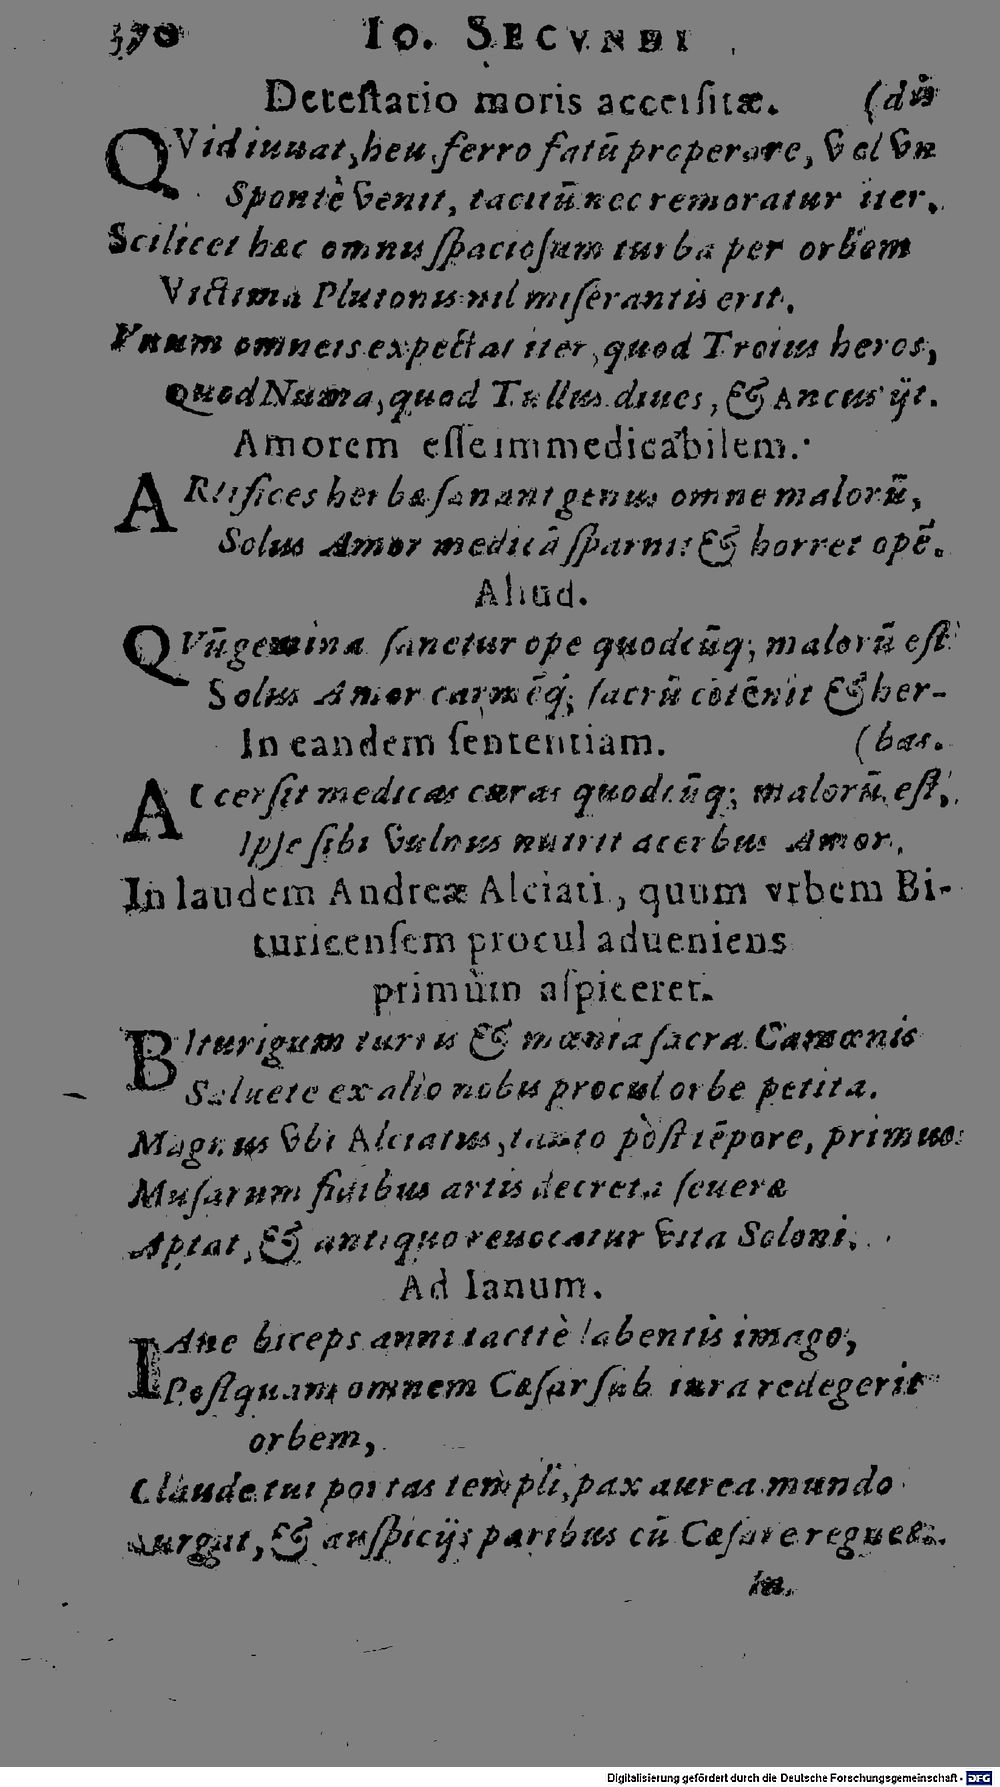 370 IO. SECVNDI
Detestatio moris accersitæ. (dũ
QVid iuuat, heu, ferro fatũ properare, vel vn
Spontè venit, tacitũ nec remoratur iter.
Scilicet hæc omnis spaciosum turba per orbem
Victima Plutonis nil miserantis erit.
Vnum omneis expectat iter, quod Troius heros,
Quod Numa, quod Tullus diues, & Ancus ijt.
Amorem esse immedicabilem.
ARtifices herbæ sanant genus omne malorũ,
Solus Amor medicã sparnit & horret opẽ.
Aliud.
QVũ gemina sanetur ope quodcũq; malorũ est
Solus Amor carmẽq; sacrũ cõtẽnit & her-
In eandem sententiam. (bas.
ACcersit medicas curas quodcũq; malorũ est,
Ipse sibi vulnus nutrit acerbus Amor.
In laudem Andreæ Alciati, quum vrbem Bi-
turicensem procul adueniens
primùm aspiceret.
BIturigum turris & mœnia sacra Camœnis
Saluete ex alio nobis procul orbe petita.
Magnus vbi Alciatus, tanto pòst tẽpore, primus
Musarum fidibus artis decreta seueræ
Aptat, & antiquo reuocatur vita Soloni.
Ad Ianum.
IAne biceps anni tacitè labentis imago,
Postquam omnem Cæsar sub iura redegerit
orbem,
Claude tui portas templi, pax aurea mundo
Surgat, & auspicijs paribus cũ Cæsare regnes.
In.
Digitalisierung gefördert durch die Deutsche Forschungsgemeinschaft - DFG